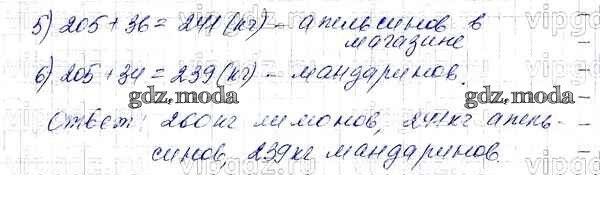 5) 205 + 36 = 241 (кг) - апельсинов в
магазине
6) 205 + 34 = 239 (кг) - мандаринов.
gdz.moda gdz.moda
Ответ: 200 кг лимонов, 241 кг апель-
синов, 239 кг мандаринов.
gdz.moda gdz.moda